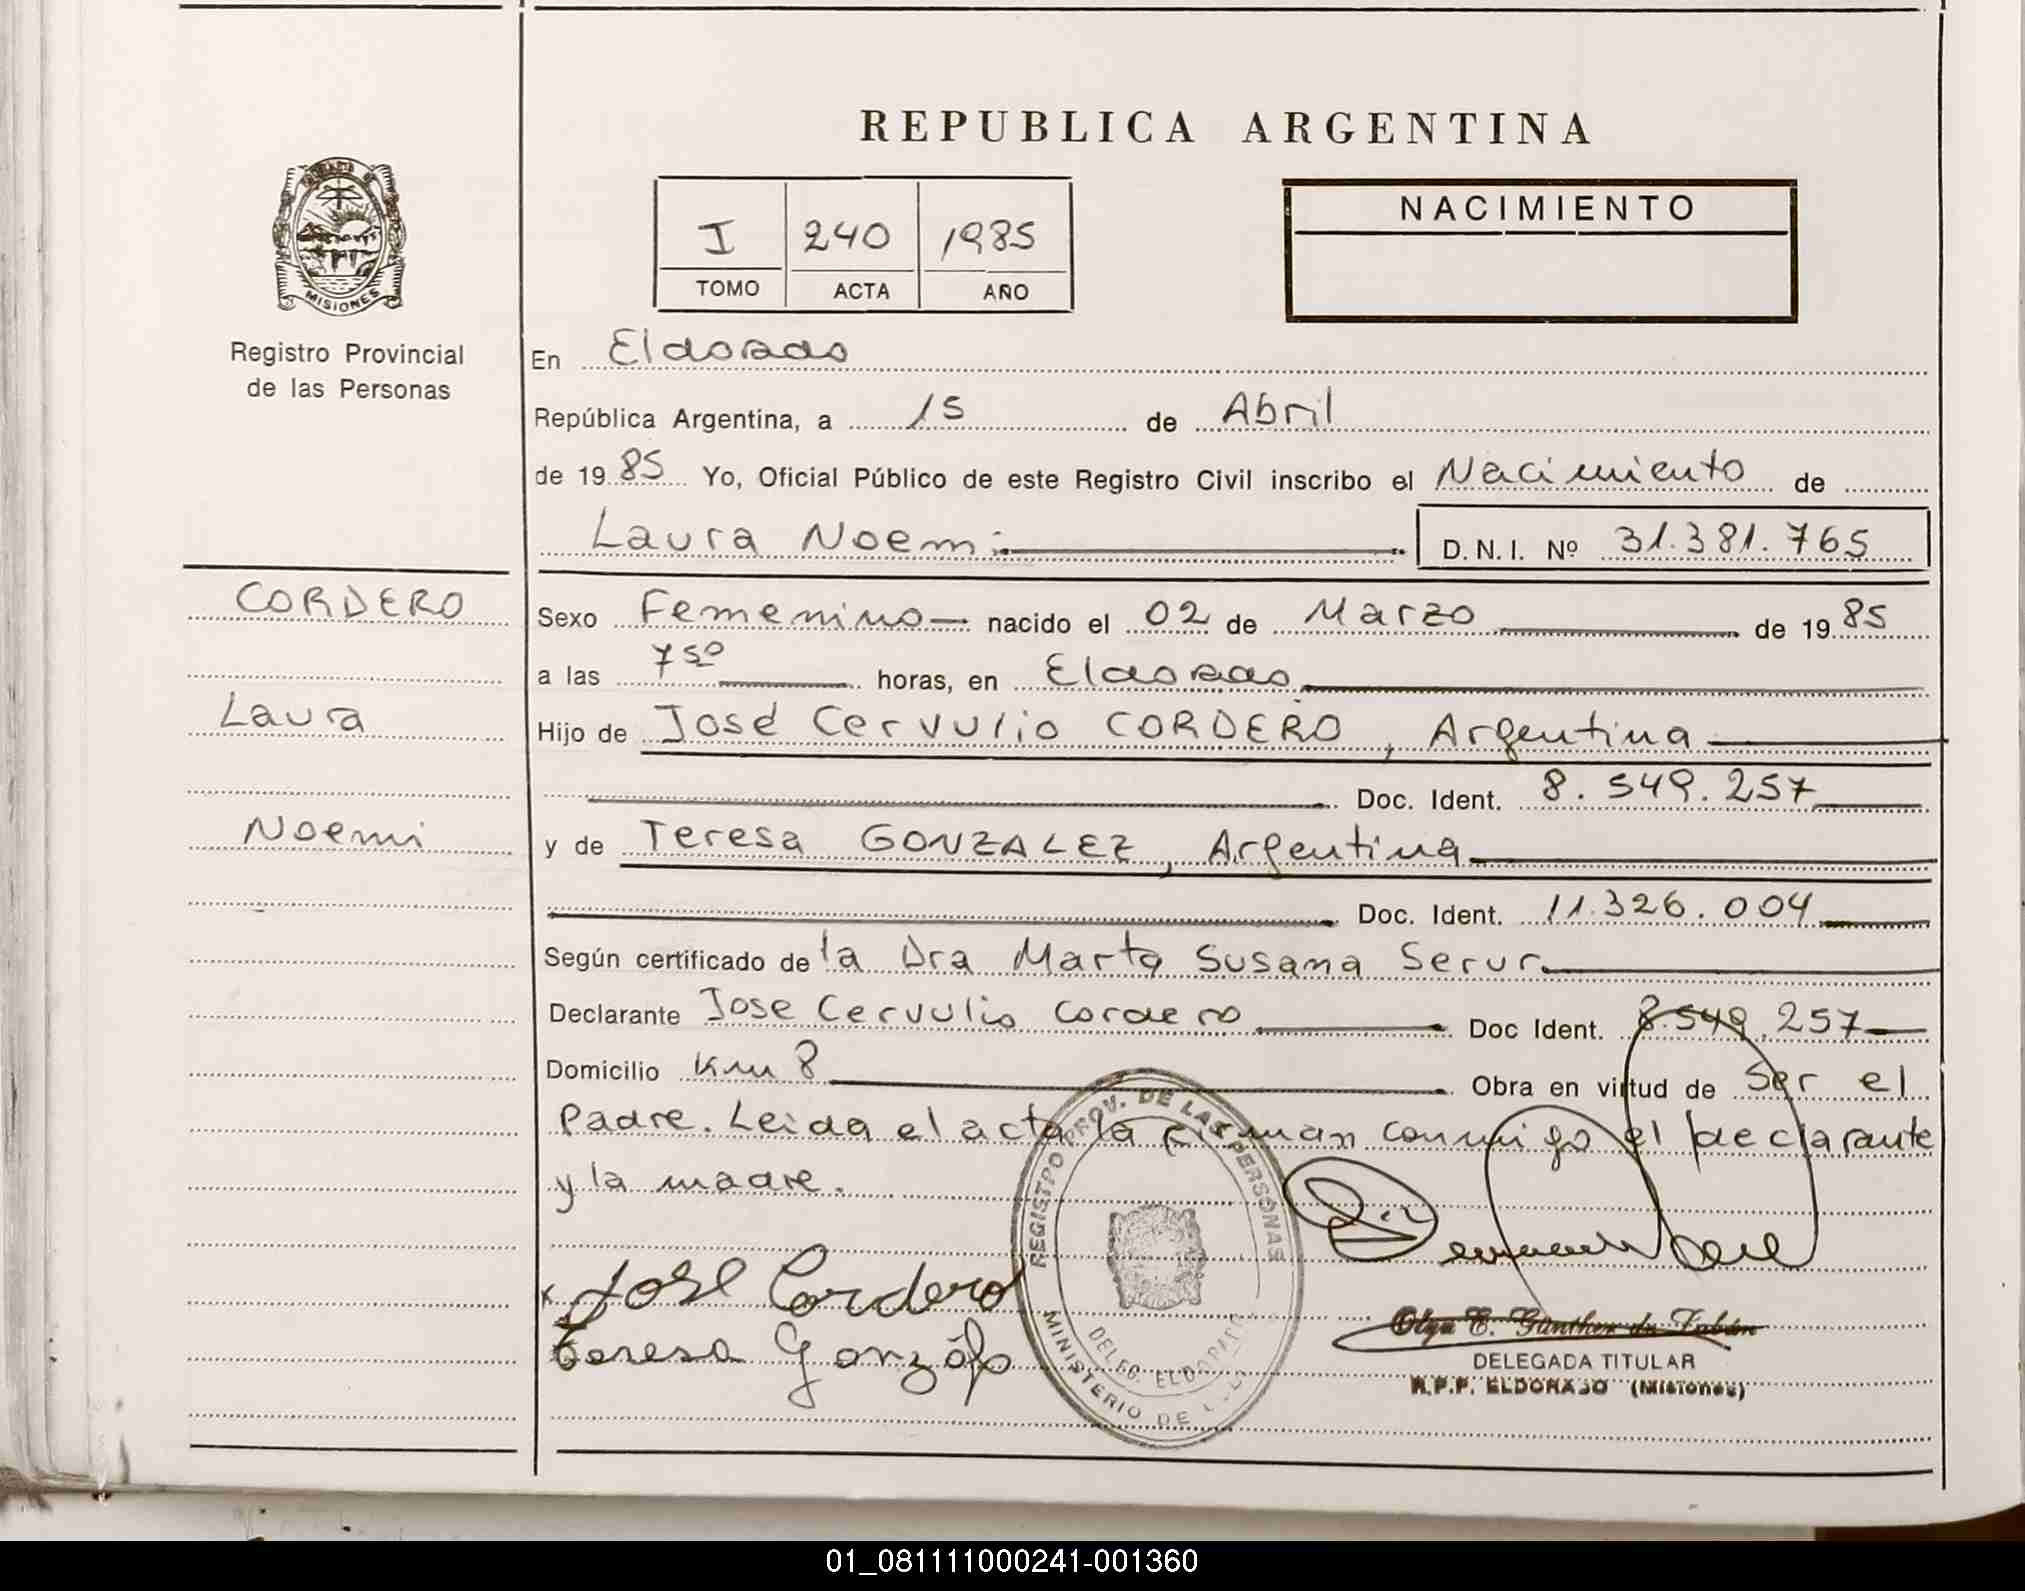 REPUBLICA ARGENTINA
I 240 1985
TOMO ACTA AÑO
NACIMIENTO
MISIONES
Registro Provincial
de las Personas
En Eldorado
República Argentina, a 15 de Abril
de 1985 Yo, Oficial Público de este Registro Civil inscribo el Nacimiento de
Laura Noemi D.N.I. Nº 31.381.765
CORDERO
Laura
Noemi
Sexo Femenino nacido el 02 de Marzo de 1985
a las 7 50 horas, en Eldorado
Hijo de José Cervulio CORDERO, Argentina
Doc. Ident. 8.549.257
y de Teresa GONZALEZ, Argentina
Doc. Ident. 11.326.004
Según certificado de la Dra Marta Susana Serur
Declarante Jose Cervulio Cordero Doc Ident. 8.549.257
Domicilio Km 8 Obra en virtud de Ser el
Padre. Leida el acta la firman conmigo el declarante
y la madre.
José Cordero
teresa Gonzáls
REGISTRO PROV. DE LAS PERSONAS
DELEG. ELDORADO
MINISTERIO DE
Olga E. Günther de Fabán
DELEGADA TITULAR
R.P.P. ELDORADO (Misiones)
01_081111000241-001360